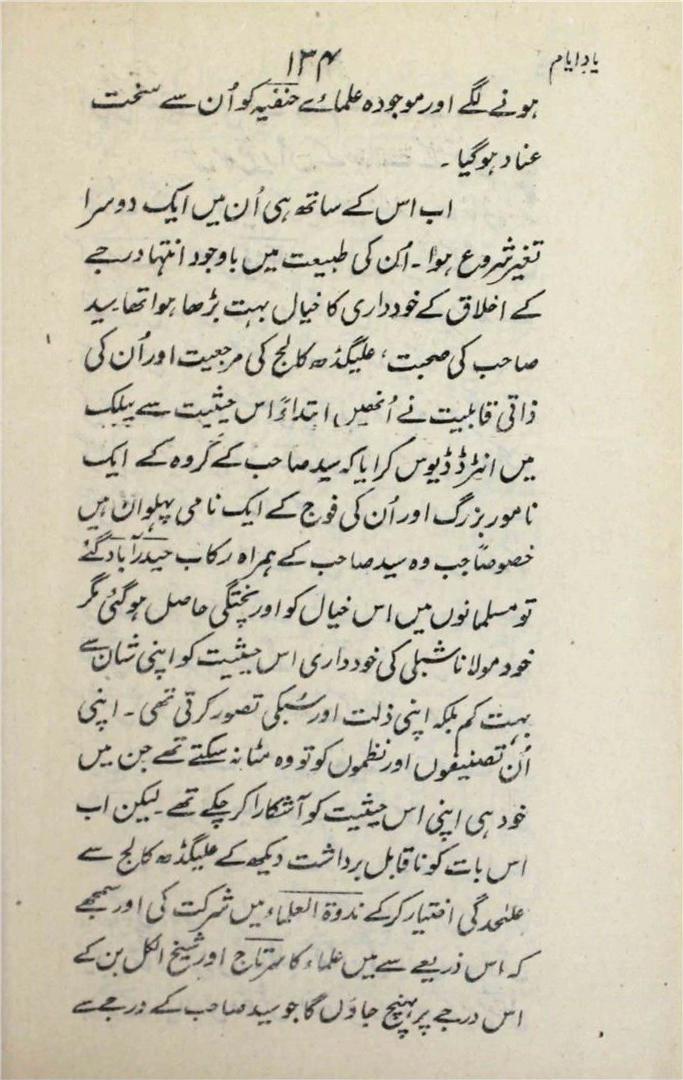 یادِ ایام
۱۳۴
ہونے لگے اور موجودہ علمائے حنفیہ کو اُن سے سخت
عناد ہوگیا۔
اب اس کے ساتھ ہی اُن میں ایک دوسرا
تغیر شروع ہوا۔ اُن کی طبیعت میں باوجود انتہا درجے
کے اخلاق کے خودداری کا خیال بہت بڑھا ہوا تھا سید
صاحب کی صحبت، علیگڈھ کالج کی مرجعیت اور اُن کی
ذاتی قابلیت نے اُنھیں ابتداءً اس حیثیت سے پبلک
میں انٹرڈڈیوس کرایا کہ سید صاحب کے گروہ کے ایک
نامور بزرگ اور اُن کی فوج کے ایک نامی پہلوان ہیں
خصوصاً جب وہ سید صاحب کے ہمراہ رکاب حیدرآباد گئے
تو مسلمانوں میں اس خیال کو اور پختگی حاصل ہوگئی مگر
خود مولانا شبلی کی خودداری اس حیثیت کو اپنی شان سے
بہت کم بلکہ اپنی ذلت اور سُبکی تصور کرتی تھی۔ اپنی
اُن تصنیفوں اور نظموں کو تو وہ مٹا نہ سکتے تھے جن میں
خود ہی اپنی اس حیثیت کو آشکارا کرچکے تھے۔ لیکن اب
اس بات کو ناقابل برداشت دیکھ کے علیگڈھ کالج سے
علٰحدگی اختیار کرکے ندوۃ العلماء میں شرکت کی اور سمجھے
کہ اس ذریعے سے میں علماء کا سرتاج اور شیخ الکل بن کے
اس درجے پر پہنچ جاؤں گا جو سید صاحب کے درجے سے